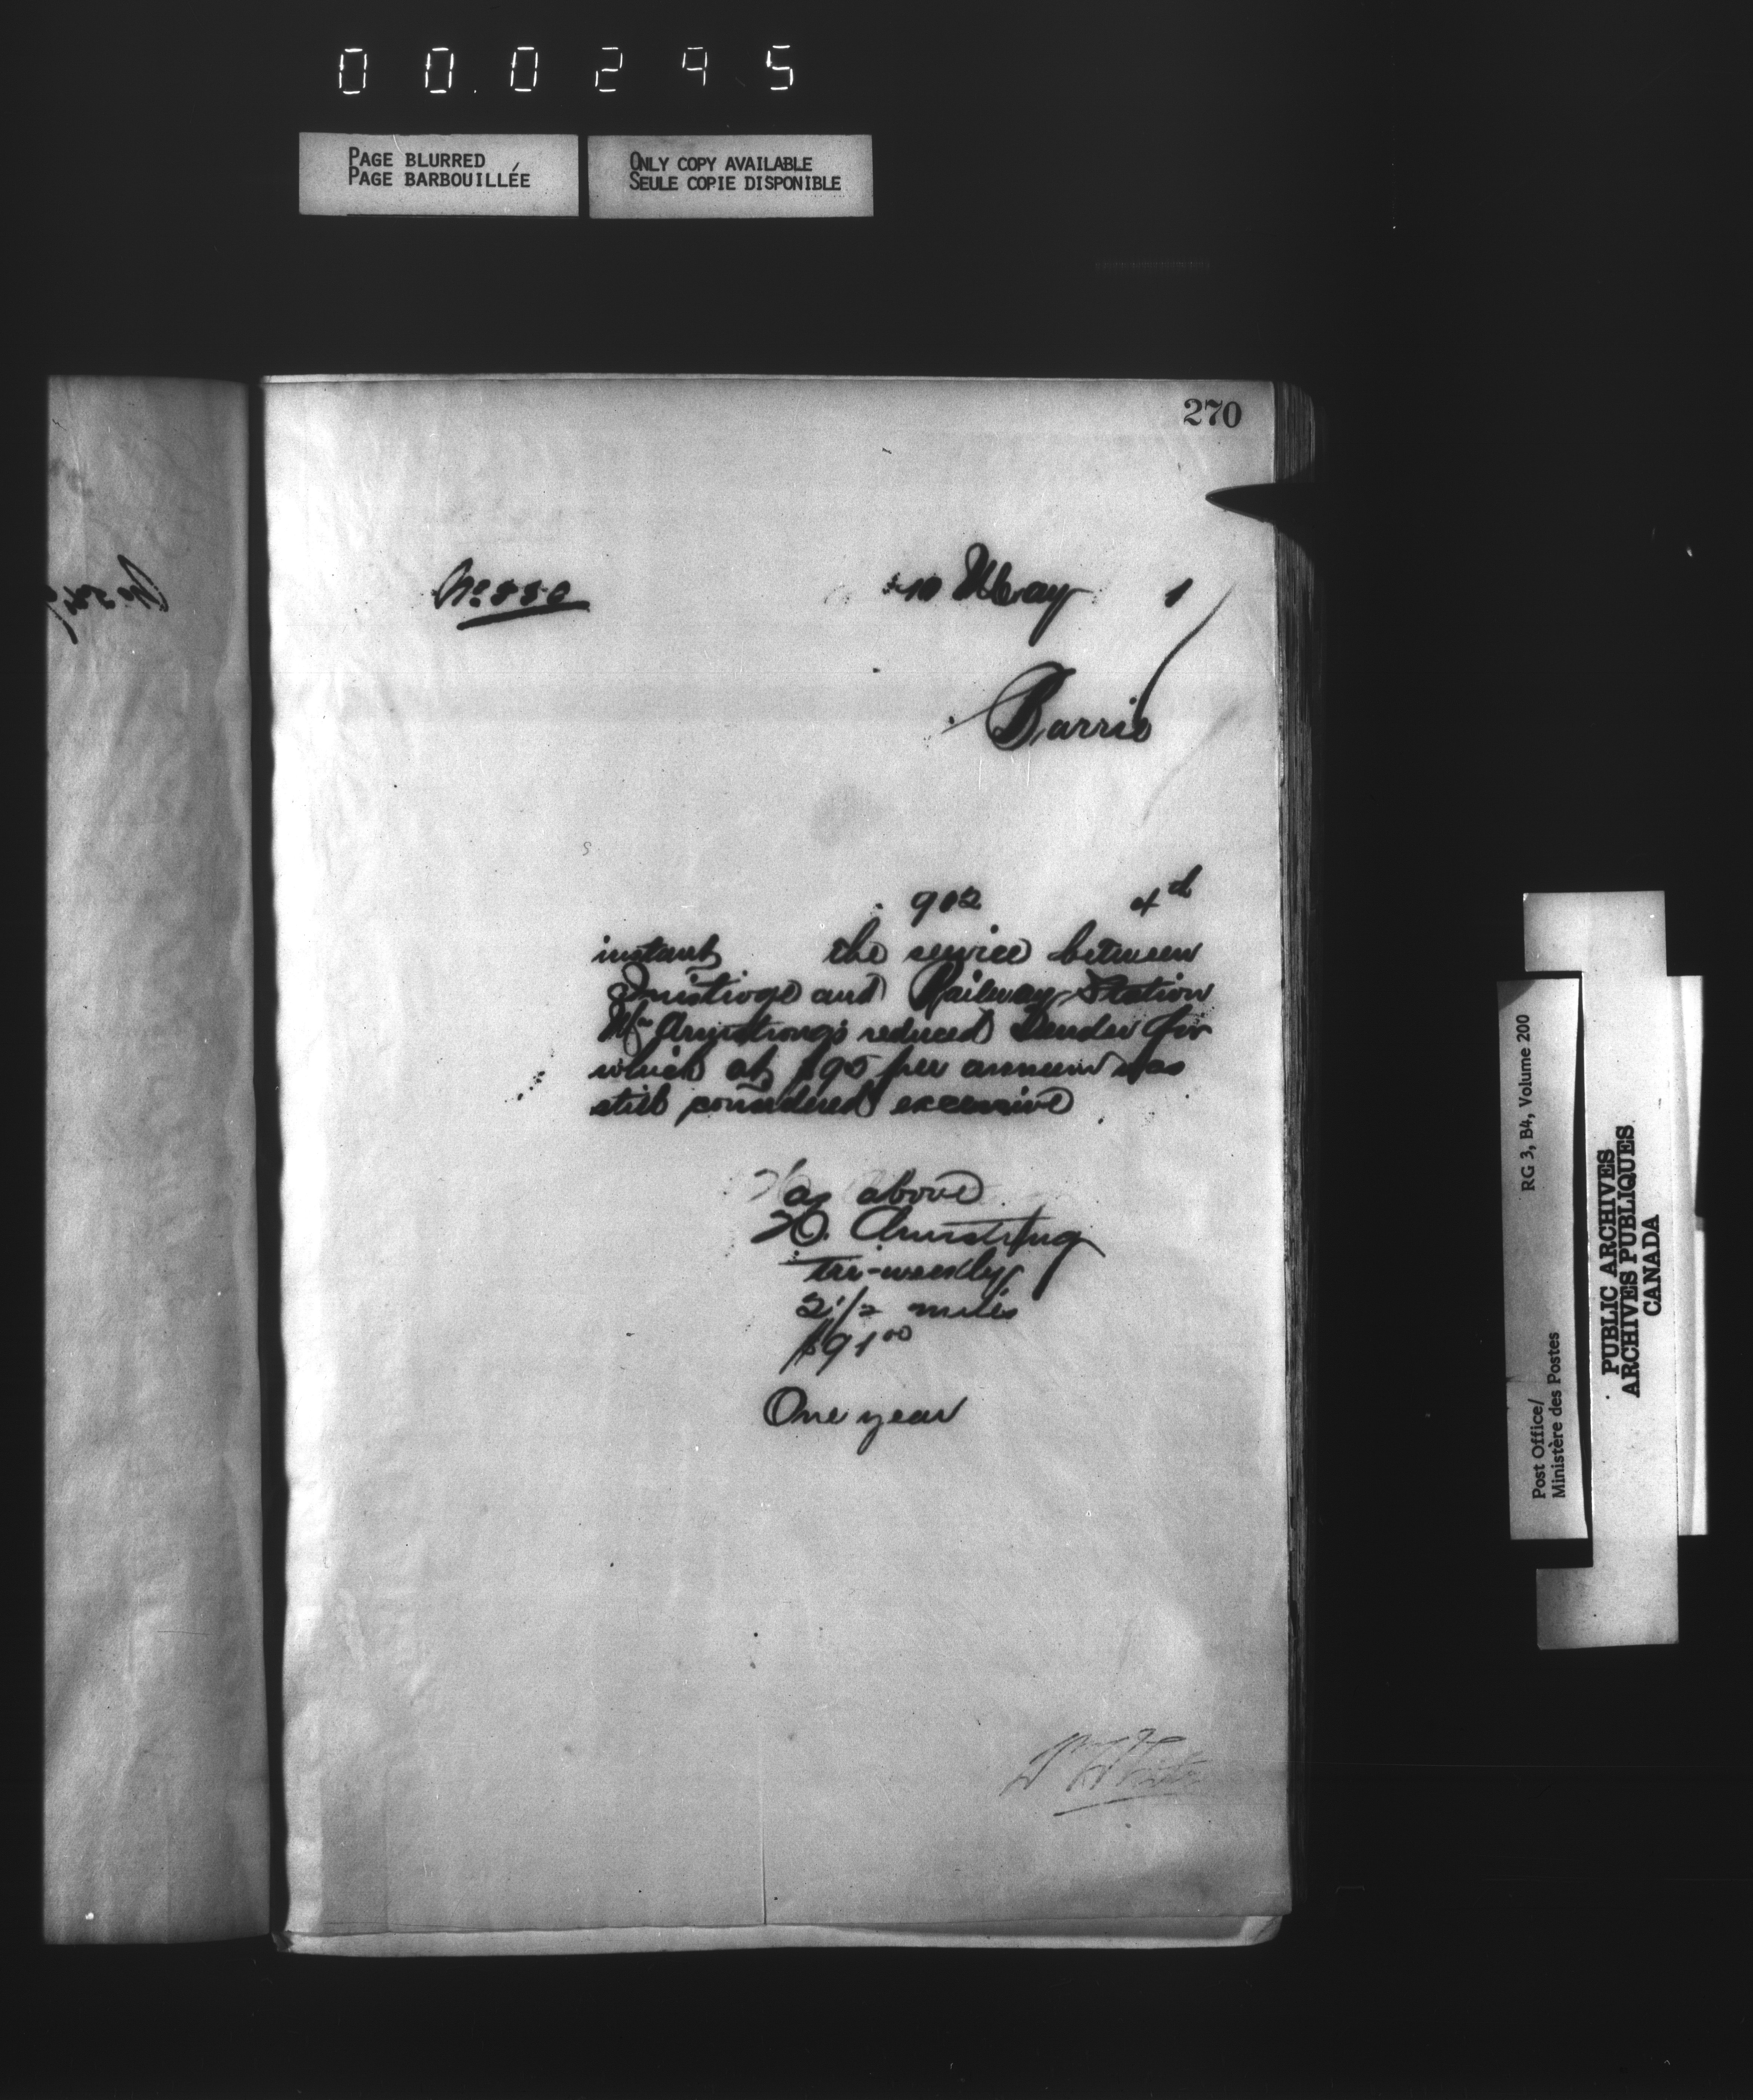 000295
PAGE BLURRED
PAGE BARBOUILLÉE
ONLY COPY AVAILABLE
SEULE COPIE DISPONIBLE
270
No. 550
10 May 1
Barrie
902 4th
instant the service between
Inistioge and Railway Station
Mr Armstrong's reduced Tender for
which at $95 per annum was
still considered excessive
as above
H. Armstrong
Tri-weekly
2 1/2 miles
$91 00
One year
RG 3, B4, Volume 200
Post Office/
Ministère des Postes
PUBLIC ARCHIVES
ARCHIVES PUBLIQUES
CANADA